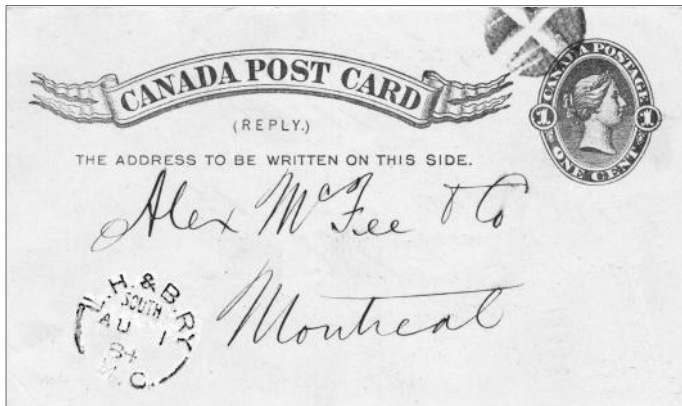 CANADA POST CARD
(REPLY.)
THE ADDRESS TO BE WRITTEN ON THIS SIDE.
CANADA POSTAGE
1 1
ONE CENT
Alex McFee & Co
Montreal
L.H.&B.RY
SOUTH
AU 1
84
M.C.